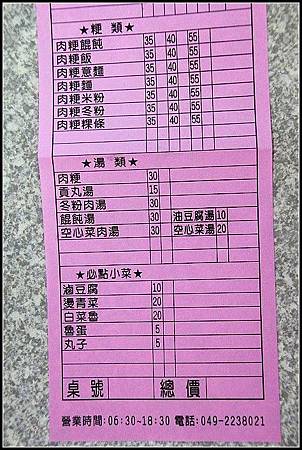 ★粳 類★
肉粳餛飩 35 40 55
肉粳飯 35 40 55
肉粳意麵 35 40 55
肉粳麵 35 40 55
肉粳米粉 35 40 55
肉粳冬粉 35 40 55
肉粳粿條 35 40 55
★湯 類★
肉粳 30
貢丸湯 15
冬粉肉湯 30
餛飩湯 30 油豆腐湯 10
空心菜肉湯 30 空心菜湯 20
★必點小菜★
滷豆腐 10
燙青菜 20
白菜魯 20
魯蛋 5
丸子 5
桌號 總價
營業時間:06:30~18:30 電話:049-2238021